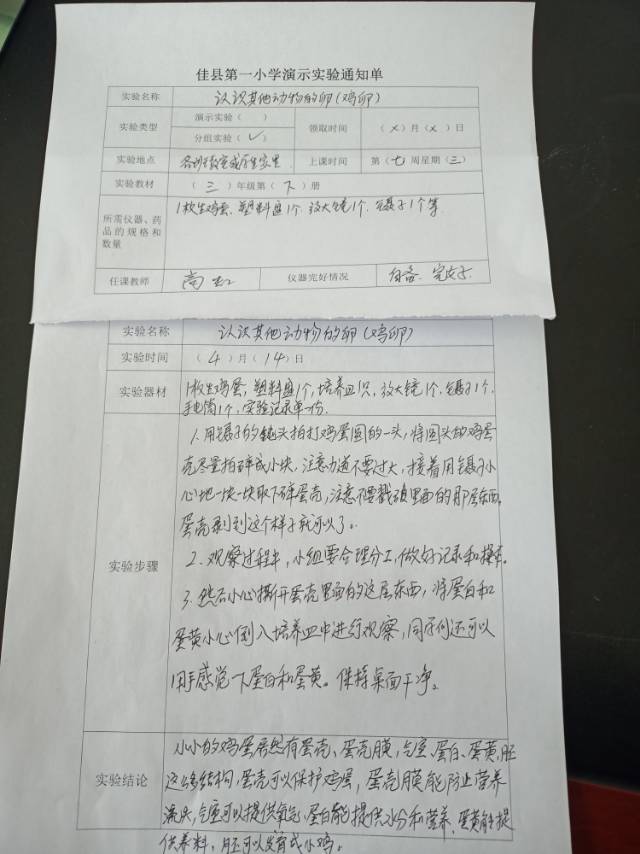 佳县第一小学演示实验通知单
实验名称 认识其他动物的卵(鸡卵)
实验类型 演示实验( ) 领取时间 (×)月(×)日
分组实验(✓)
实验地点 上课时间 第(七)周星期(三)
实验教材 (三)年级第(下)册
所需仪器、药品的规格和数量 1枚生鸡蛋、塑料盘1个、放大镜1个、镊子1个等
任课教师 仪器完好情况 自备、完好
实验名称 认识其他动物的卵(鸡卵)
实验时间 (4)月(14)日
实验器材 1枚生鸡蛋,塑料盘1个,培养皿1只,放大镜1个,镊子1个,
手电筒1个,实验记录单一份.
实验步骤
1.用镊子的钝头拍打鸡蛋圆的一头,将圆头的鸡蛋
壳尽量拍碎成小块,注意力道不要过大,接着用镊子小
心地一块一块取下碎蛋壳,注意不要戳破里面的那层东西,
蛋壳剥到这个样子就可以了。
2.观察过程中,小组要合理分工,做好记录和
3.然后小心撕开蛋壳里面的这层东西,将蛋白和
蛋黄小心倒入培养皿中进行观察,同学们还可以
用手感觉下蛋白和蛋黄。保持桌面干净。
实验结论
小小的鸡蛋居然有蛋壳、蛋壳膜,气室、蛋白、蛋黄、胚
这多结构,蛋壳可以保护鸡蛋,蛋壳膜能防止营养
流失,气室可以提供氧气,蛋白能提供水分和营养,蛋黄能提
供养料,胚可以发育成小鸡。